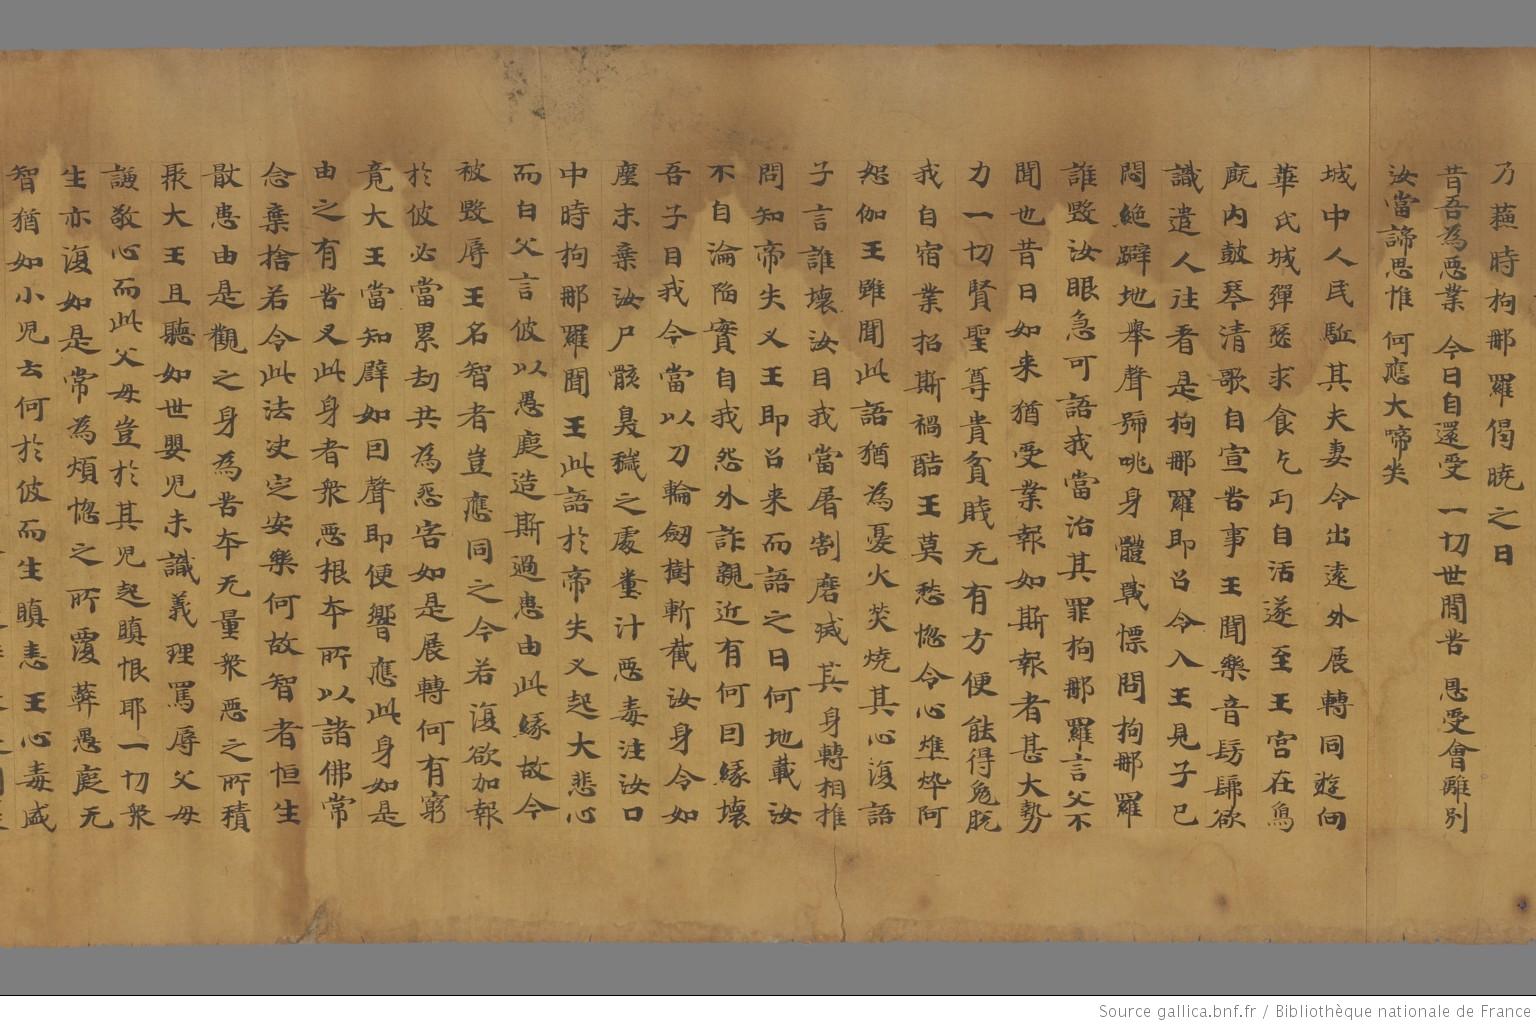 乃蘓時拘那羅偈曉之曰
昔吾為惡業 今日自還受 一切世間苦 恩受會離別
汝當諦思惟 何應大啼哭
城中人民駈其夫妻令出遠外展轉同遊向
華氏城彈瑟求食乞丐自活遂至王宮在烏
廐内皷琴清歌自宣苦事王聞樂音髣髴欲
識遣人往看是拘那羅即召令入王見子已
悶絶躃地舉聲㘁咷身體戰慓問拘那羅
誰毀汝眼急可語我當治其罪拘那羅言父不
聞也昔日如来猶受業報如斯報者甚大勢
力一切賢聖尊貴貧賤无有方便能得免脫
我自宿業招斯禍酷王莫愁惚令心燋焠阿
恕伽王雖聞此語猶為憂火焚燒其心復語
子言誰壞汝目我當屠割磨滅其身轉相推
問知帝失叉王即召来而語之曰何地載汝
不自淪陷實自我怨外詐親近有何因緣壞
吾子目我今當以刀輪劒樹斬截汝身令如
塵末棄汝尸骸臭穢之處糞汁惡毒注汝口
中時拘那羅聞王此語於帝失叉起大悲心
而白父言彼以愚庭造斯過患由此緣故今
被毀辱王名智者豈應同之今若復欲加報
於彼必當累劫共為惡害如是展轉何有窮
竟大王當知譬如因聲即便響應此身如是
由之有苦又此身者衆惡根本所以諸佛常
念棄捨若令此法决定安樂何故智者恒生
猒患由是觀之身為苦本无量衆惡之所積
聚大王且聽如世嬰兒未識義理罵辱父母
謙敬心而此父母豈於其兒起瞋恨耶一切衆
生亦復如是常為煩惚之所覆蔽愚庭无
智猶如小兒云何於彼而生瞋恚王心毒盛
Source gallica.bnf.fr / Bibliothèque nationale de France